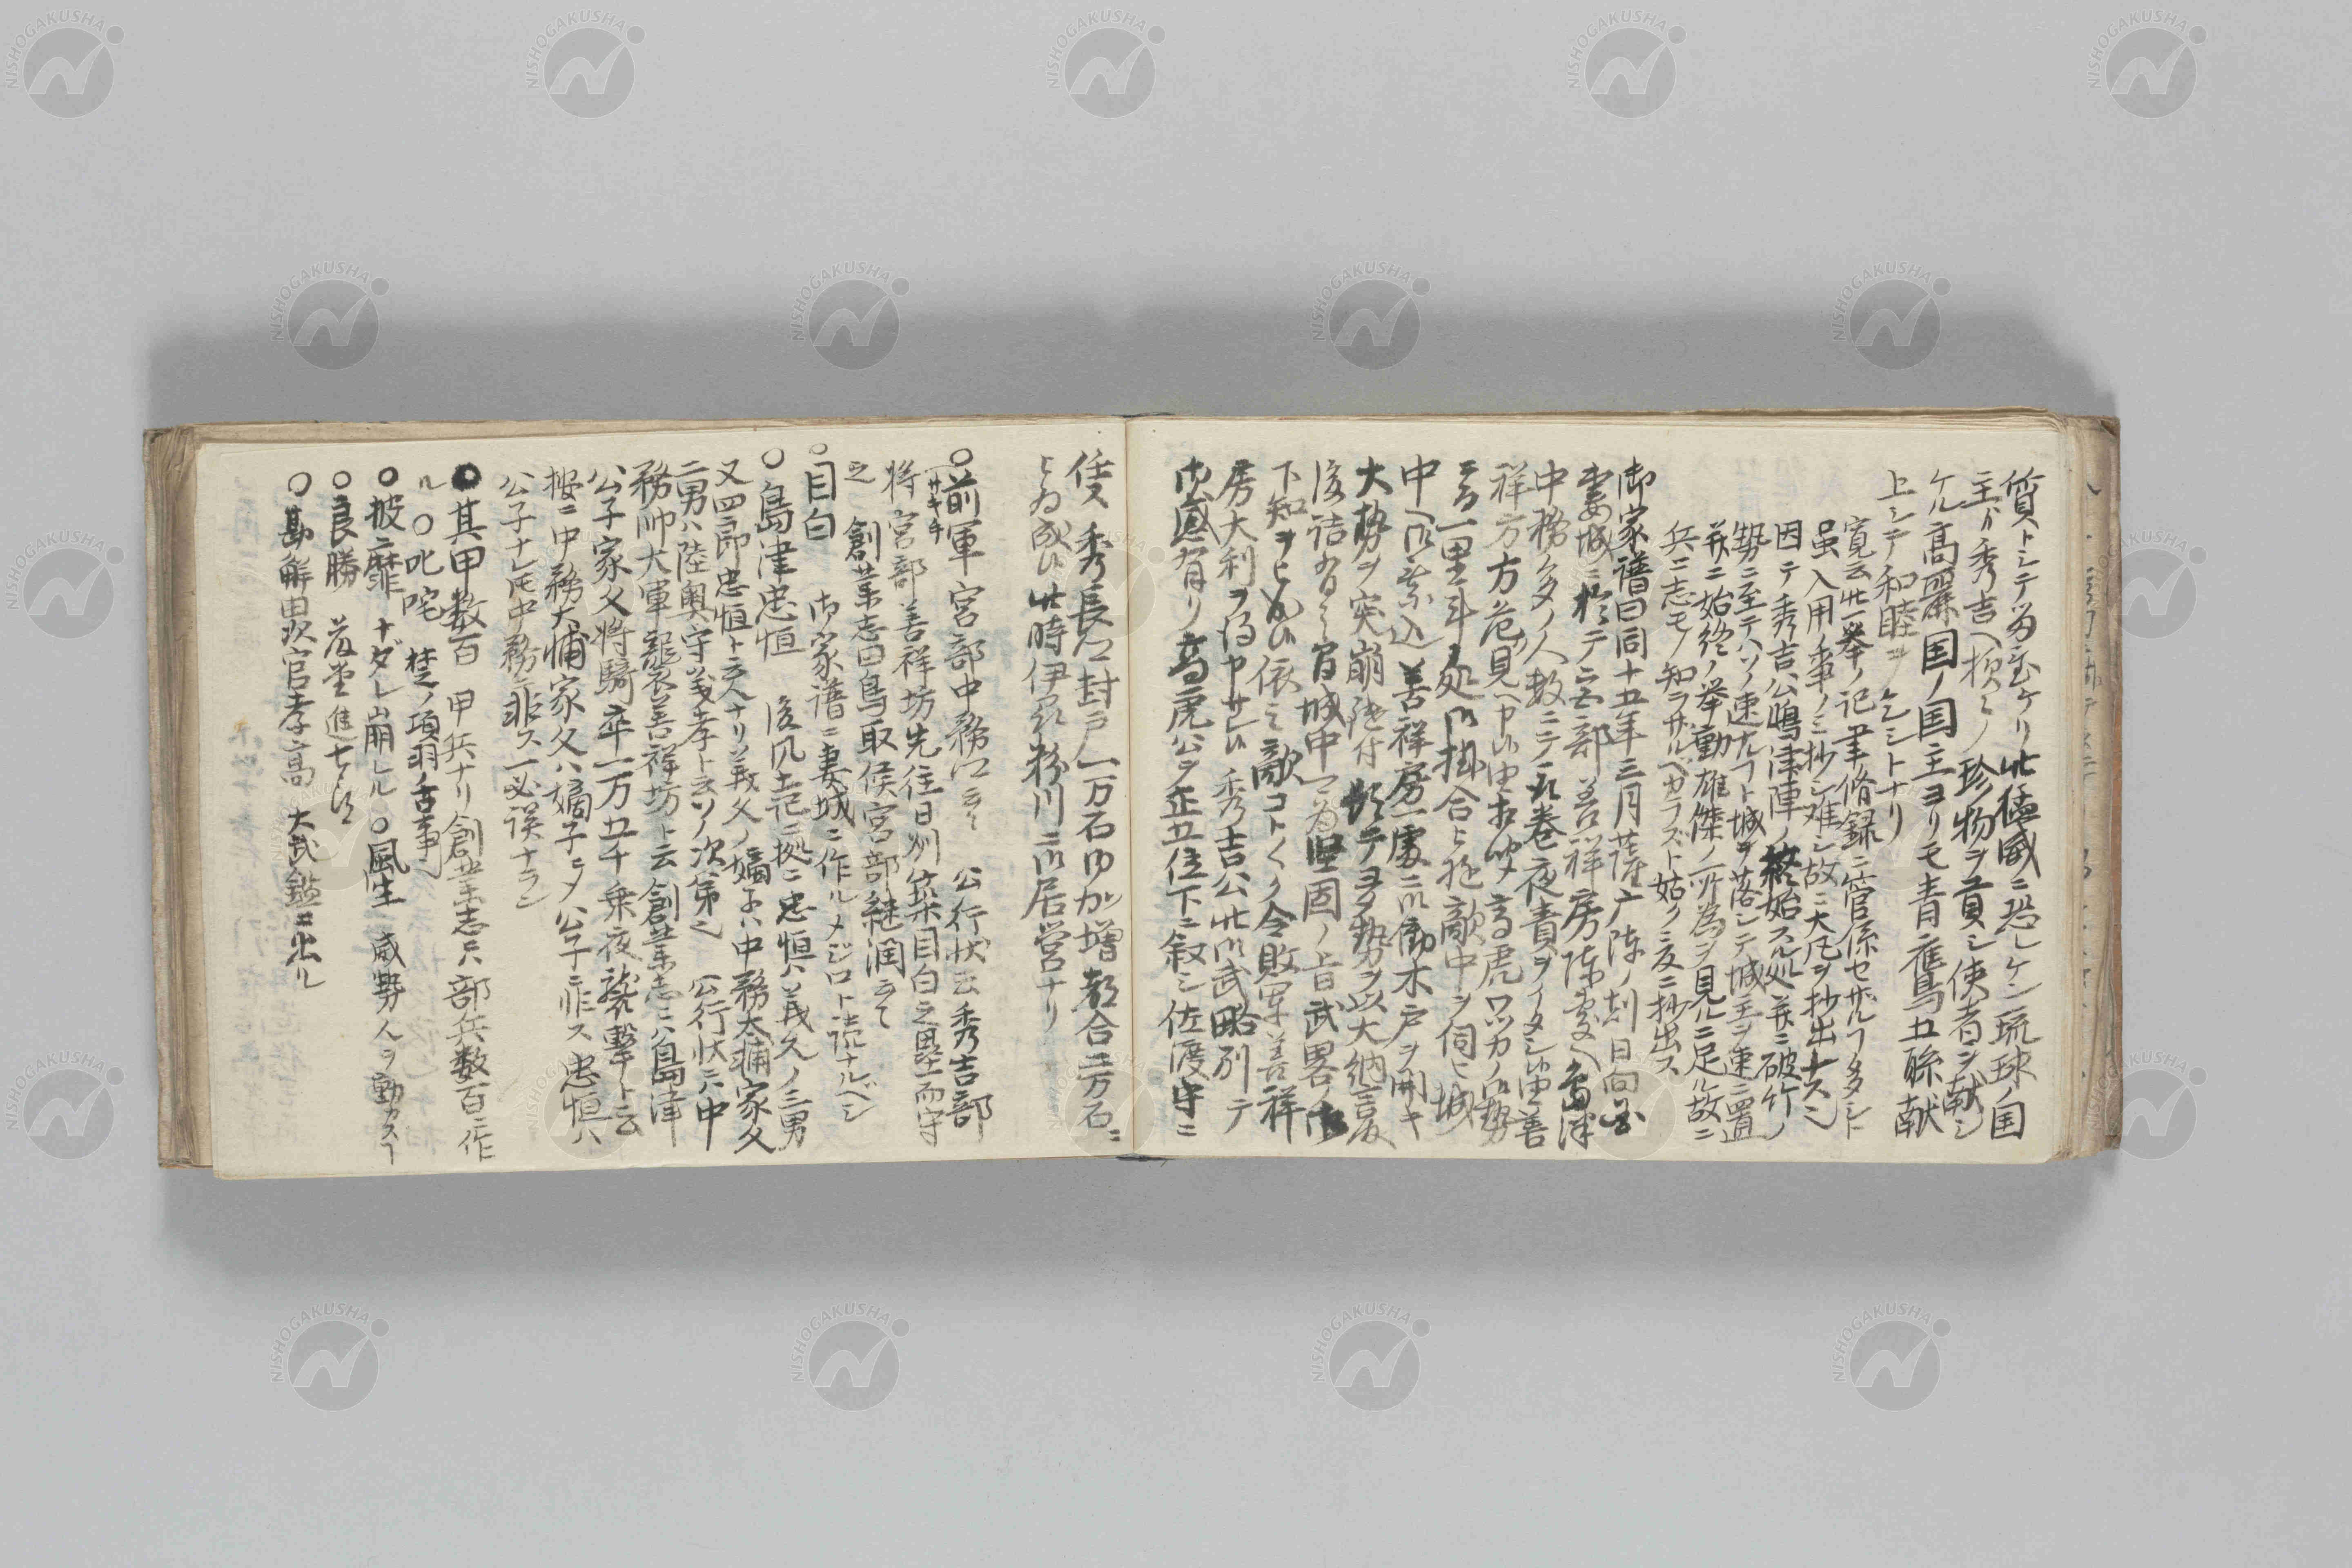 質トシテ為登ケリ此極威ニ恐レケン琉球ノ国
主カ秀吉ヘ種々ノ珍物ヲ貢シ使者ヲ献シ
ケル高麗国ノ国主ヨリモ青鷹烏五聯献
上シテ和睦ヲケシトナリ
寛云此一挙ノ記事脩録ニ管係セザルフタタント
虽入用ノ事ノミ抄シ難シ故ニ大凡ヲ抄出ナスニ
因テ秀吉公嶋津陣ノ終始スル処并ニ破竹ノ
勢ニ至テハソノ速ナルフト城ヲ落シテ城主ヲ速ニ置
并ニ始終ノ挙動雄傑ノ所為ヲ見ルニ足ル故ニ
兵ニ志モノ知ラザルベカラズト姑ク爰ニ抄出ス
御家譜曰同十五年三月薩广陣ノ刻日向国
妻城ニ於テ宮部善祥房陣處ヘ島津
中務多ノ人数ニテ取巻夜責ヲイタシ候由善
祥方方危見ヘ申候由相聞高虎公ワツカノ御勢
ニテ一里斗ノ処御掛合と極敵中ヲ伺ヒ城
中ヘ御乗込善祥房一處ニ御働木戸ヲ開キ
大勢ヲ突崩追付続テ多勢ヲ以大納言殿
後詰有之省城中一為堅固ノ旨武畧ノ御
下知ヲ依之敵コトくク令敗軍善祥
房大利ヲ得申サレ秀吉公此御武略別テ
御感有リ高虎公ヲ正五位下ニ叙シ佐渡守ニ
任ス秀長公封戸一万石御加増都合二万石ニ
此時伊粉川ニ御居営ナリ
○前軍宮部中務云々 公行状云秀吉部
サキテ
将宮部善祥坊先往日州築目白之塁而守
之 創業志曰鳥取侯宮部継潤云々
○目白 御家譜ニ妻城ニ作ルメジロト読ナルベシ
○島津忠恒 後風土記ニ拠ニ忠恒ハ義久ノ三男
又四郎忠恒ト云人ナリ義父ノ嫡子ハ中務太輔家久
二男ハ陸奥守義孝ト云ソノ次第也 公行状ニハ中
務帥大軍襲善祥坊ト云創業志ニハ島津
公子家久将騎卒一万五千乗夜襲撃ト云
按ニ中務大輔家久ハ嫡子ニメ公子ニ非ス忠恒ハ
公子ナレ𪜈中務ニ非ス一必誤ナラン
●其甲数百 甲兵ナリ創業志ニハ部兵数百ニ作
ル○叱咤 楚ノ項羽ノ古事
●披靡 ナダレ崩レル○風生 威勢人ヲ動カスフ
○良勝
○勘解由次官孝高 大武鑑ニ出ル